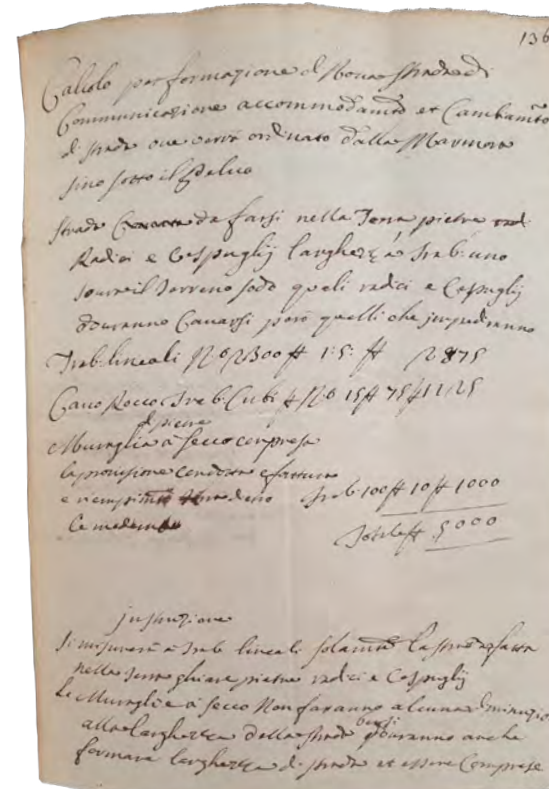 136
Calcolo per formazione d Nova Strada di
Communicazione accommodam.to et Cambiam.to
di strada ove verrà ordinato dalla Marmora
sino sotto il
Strada da farsi nella Terra pietre
Radici e Cespuglij larghezza Trab: uno
sovra il Terreno sodo quali radici e Cespuglij
dovranno Cavarsi però quelli che impediranno
Trab: lineali N.o 2300 ₶ 1:5: ₶ 2875
Cavo Rocco Trab. Cubi ₶ N.o 15 ₶ 75 ₶ 1125
di pietre
Muraglia a secco compresa
la provisione condotta e fattura
e riempim.to Trab. 100 ₶ 10 ₶ 1000
le medeme
Totale ₶ 5000
Instruzione
Si misurerà a Trab. lineali solam.te la strada fatta
nella terra ghiare pietre radici e Cespuglij
Le Muraglie a secco Non faranno alcuna
alla larghezza della strada bensi potranno anche
formare larghezza di strada et essere Comprese